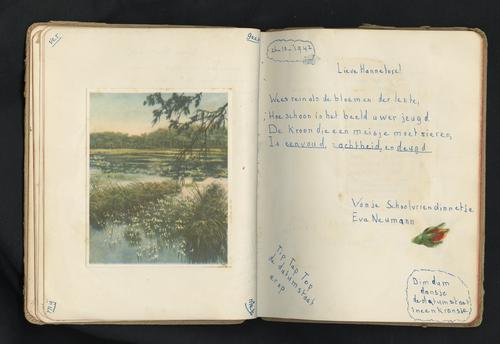 Ver
geet
mij
niet
26-10-1942
Lieve Hannelore!
Wees rein als de bloemen der lente,
Hoe schoon is het beeld uwer jeugd
De Kroon die een meisje moet sieren,
Is eenvoud, zachtheid, en deugd
Van je Schoolvriendinnetje
Eva Neumann
Tip Tap Top
de datum staat
er op
Dim dam
dansje
de datum staat
in een Kransje